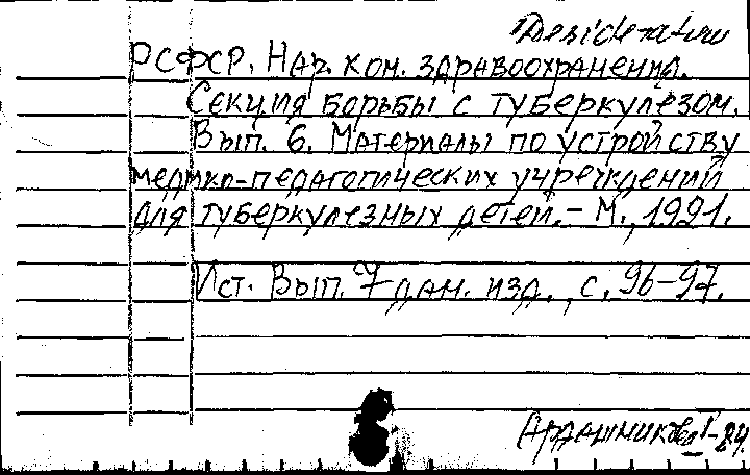 Desiderata
РСФСР. Нар. ком. здравоохранения.
Секция борьбы с туберкулёзом.
Вып. 6. Материалы по устройству
медико-педагогических учреждений
для туберкулезных детей. – М., 1921.
Ист. Вып. 7 дан. изд., с. 96-97.